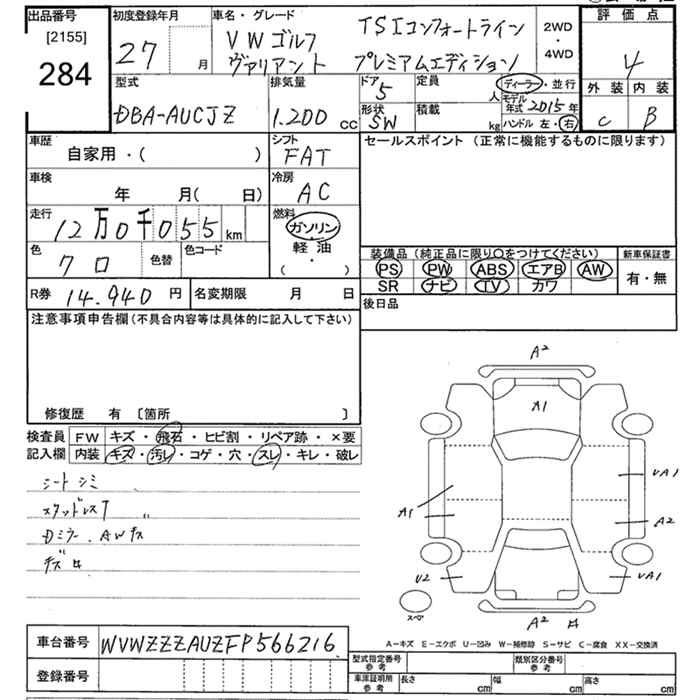 出品番号
[2155]
284
初度登録年月
27 月
車名・グレード
VW ゴルフ TSIコンフォートライン
ヴァリアント プレミアムエディション
2WD
・
4WD
評価点
4
外装 内装
C B
型式
DBA-AUCJZ
排気量
1.200 cc
ドア
5
定員
人
ディーラー・並行
モデル年式 2015年
形状
SW
積載
kg
ハンドル 左・右
車歴
自家用・( )
シフト
FAT
セールスポイント (正常に機能するものに限ります)
車検
年 月(日)
冷房
AC
走行
12万0千055 km
燃料
ガソリン
軽油
( ・ )
色
クロ
色替
色コード
装備品 (純正品に限り○をつけてください)
新車保証書
PS PW ABS エアB AW
SR ナビ TV カワ
有・無
R券 14.940 円
名変期限 月 日
後日品
注意事項申告欄 (不具合内容等は具体的に記入して下さい)
修復歴 有 [箇所 ]
検査員
記入欄
FW キズ・飛石・ヒビ割・リペア跡・×要
内装 キズ・汚レ・コゲ・穴・スレ・キレ・破レ
シートシミ
スタッドレスT 〃
Dミラー.AWキズ
A2
A1
A1
UA1
A2
U2
UA1
A2
スペア
A-キズ E-エクボ U-凹み W-補修跡 S-サビ C-腐食 XX-交換済
車台番号 WVWZZZAUZFP566216
登録番号
型式指定番号
参考
類別区分番号
参考
車庫証明用
参考
長さ cm 幅 cm 高さ cm